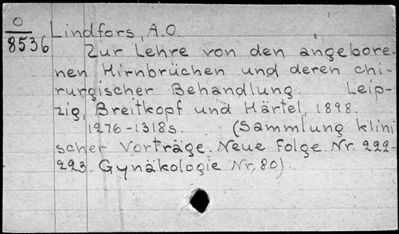 O
8536
Lindfors, A.O.
Zur Lehre von den angebore-
nen Hirnbrüchen und deren chi-
rurgischer Behandlung. Leip-
zig, Breitkopf und Härtel, 1898.
1276-1318s. (Sammlung klini
scher Vorträge. Neue Folge. Nr. 222-
223. Gynäkologie Nr, 80)